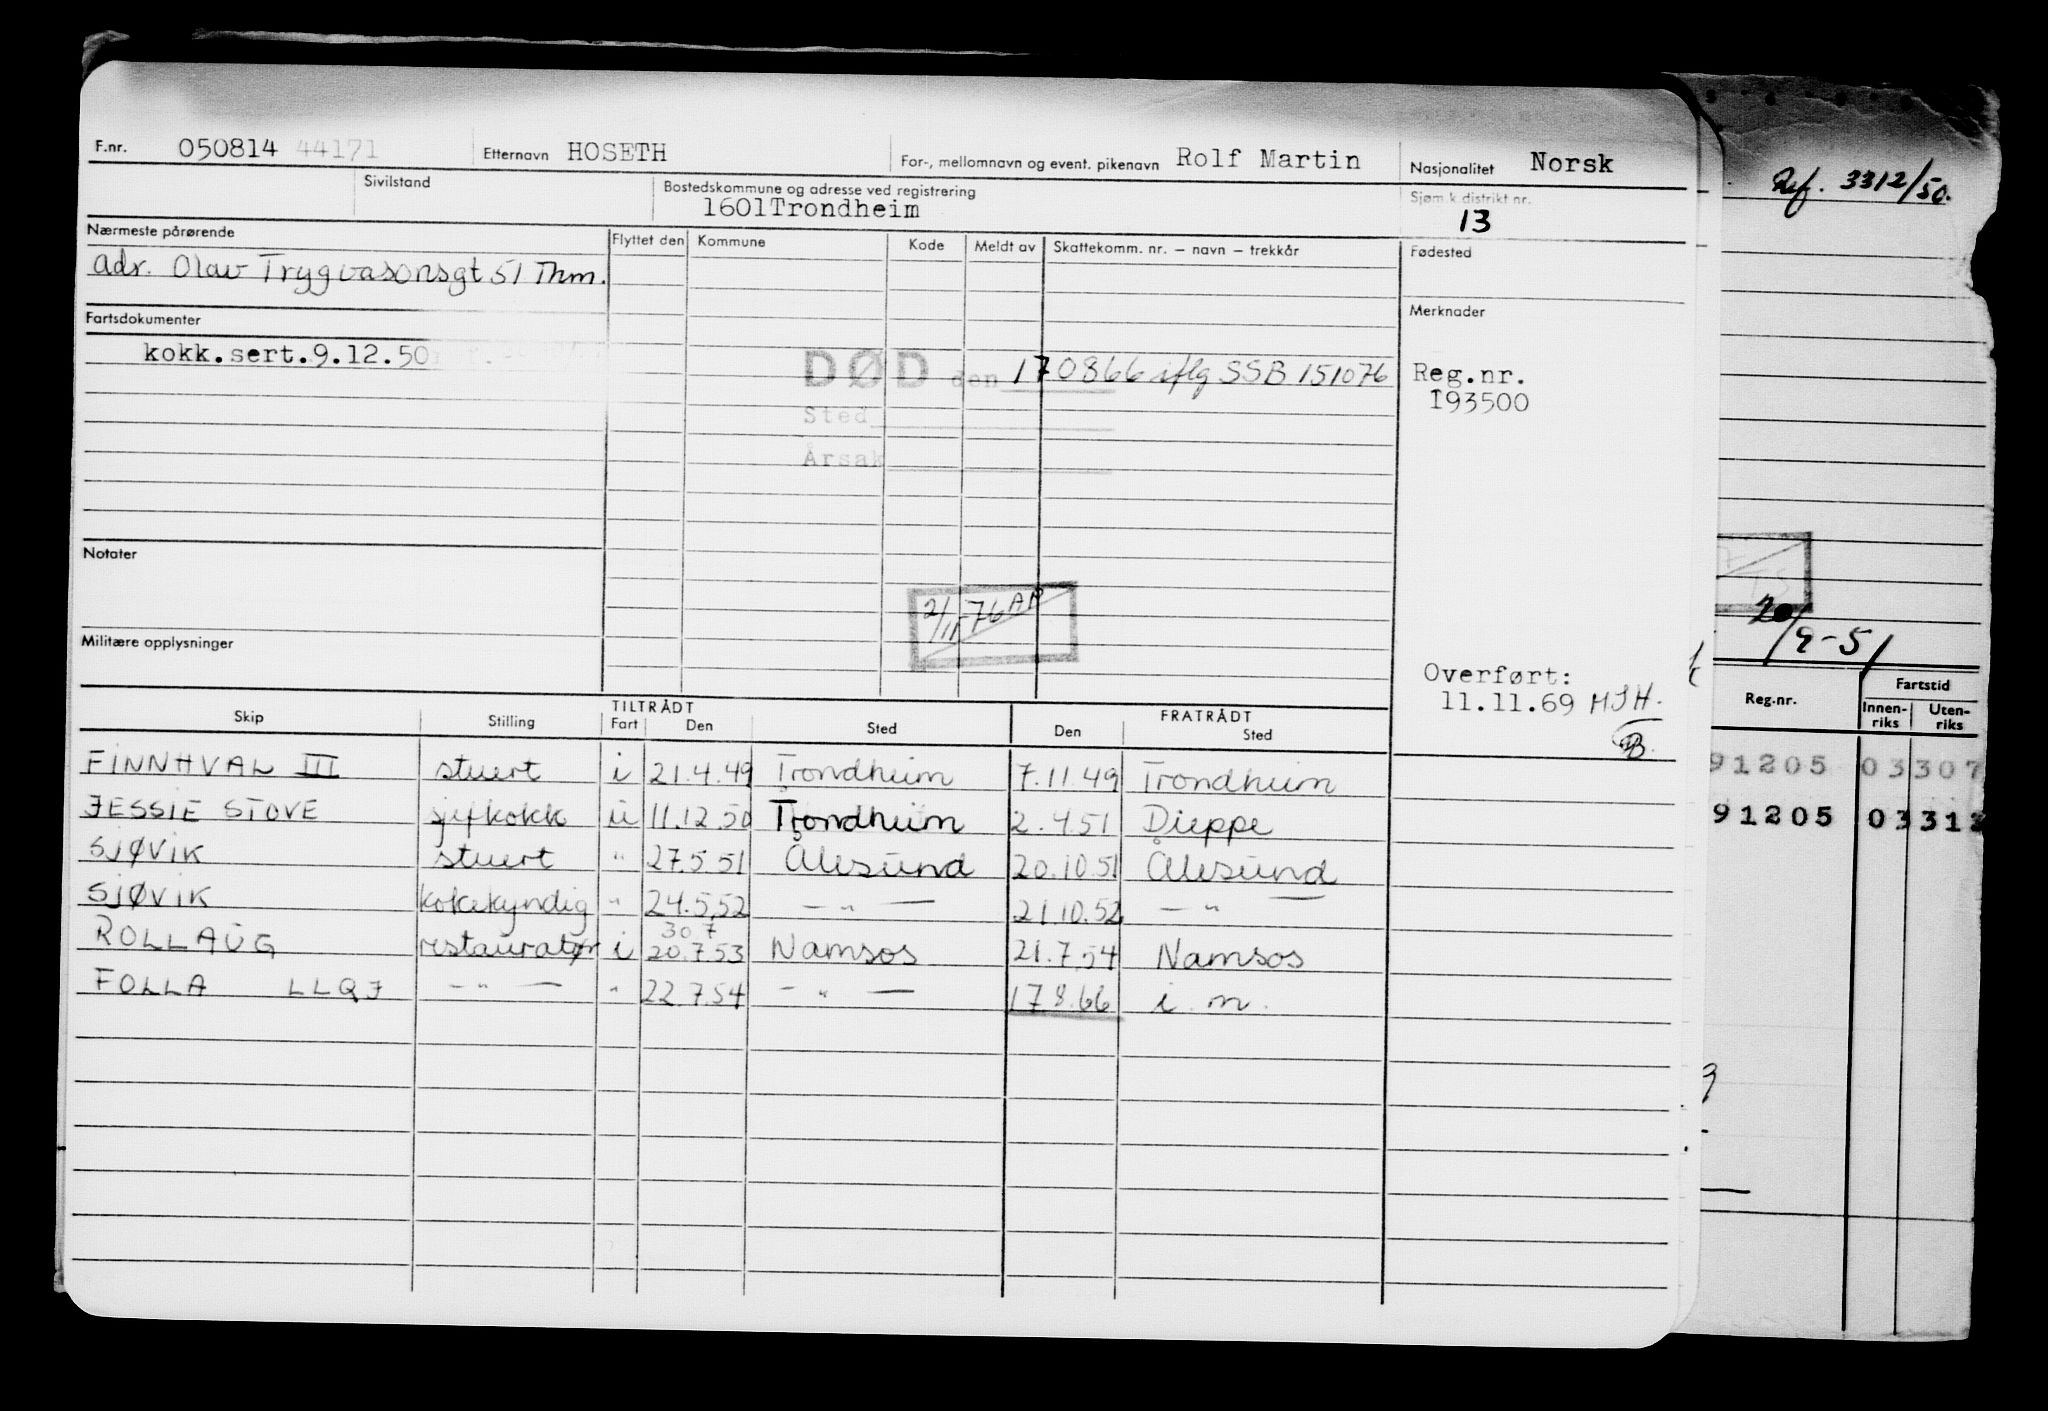 F.nr. 050814 44171 Etternavn HOSETH For-, mellomnavn og event. pikenavn Rolf Martin Nasjonalitet Norsk
Sivilstand Bostedskommune og adresse ved registrering Sjøm.k.distrikt nr.
1601Trondheim 13
Nærmeste pårørende Flyttet den Kommune Kode Meldt av Skattekomm. nr. – navn – trekkår Fødested
adr. Olav Trygvasonsgt 51 Thm.
Fartsdokumenter Merknader
kokk.sert.9.12.50
DØD den 170866 iflg SSB 151076
Sted
Årsak
Reg.nr.
193500
Notater
2/11-76 AP
Militære opplysninger
Overført:
11.11.69 MJH.
Skip Stilling TILTRÅDT Fart Den Sted FRATRÅDT Den Sted
FINNHVAL III stuert i 21.4.49 Trondheim 7.11.49 Trondheim
JESSIE STOVE sjefkokk u 11.12.50 Trondheim 2.4.51 Dieppe
SJØVIK stuert " 27.5.51 Ålesund 20.10.51 Ålesund
SJØVIK kokekyndig " 24.5.52 — " — 21.10.52 — " —
30 7
ROLLAUG restauratør i 20.7.53 Namsos 21.7.54 Namsos
FOLLA LLQJ — " — " 22.7.54 — " — 17.8.66 i. m.
Ref. 3312/50.
20/9-51
Reg.nr. Fartstid
Innen-riks Uten-riks
91205 03 307
91205 03 313